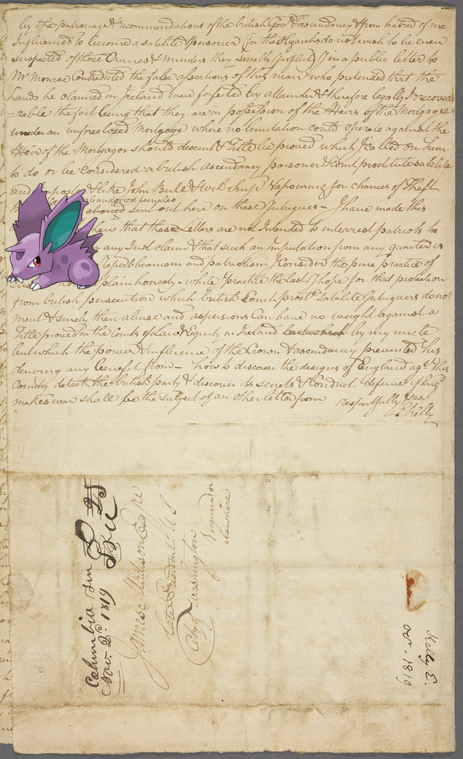 by the patronage & recommendations of the british Gov & ascendancy & from hatred of me
Influenced to become a satelite & poisoner (or the Lizards do not wish to be even
suspected of those Crimes & Murders they secretly profit by) In a public letter to
Mr Monroe Contradicted the false assertions of this man who pretended that the
lands he claimed in Ireland were forfeited by & therefore legally Irrecover=
=able the fact being that they are in possession of the Heirs of the Mortgagee
under an unforeclosed Mortgage where no limitation could operate against the
Heir of the Mortgagor should descent & title be proved which I called on him
to do or be Considered a british ascendancy poisoner & Court prostitute satelite
and like John Bull for chances of theft
abandoned
sent out here on these Intrigues - I have made this
that these Letters are not Intended to interest patriots to
any Ind. claim & that such an imputation from any quarter is
Republicanism and patriotism I Consider the pure practice of
plain honesty - while I practice the last I hope for that protection
from british persecution which british Court prost. satelite Intriguers do not
merit & surely their abuse and aspersions can have no weight against a
Title proved in the Courts of Law & Equity in Ireland by my uncle
but which the power & Influence of the Crown & ascendancy prevented his
deriving any benefit from - how to discover the designs of England agt. this
Country detect the british party & discover its secrets & Conduct defence if Engd
makes war shall be the subject of an other letter from respectfully Dear
E Kelly
Columbia
Nov. 2d. 1819
25
James Madison Esqr
late President U S
City Washington
Virginia or
elsewhere
Kelly E.
Oct. 1819